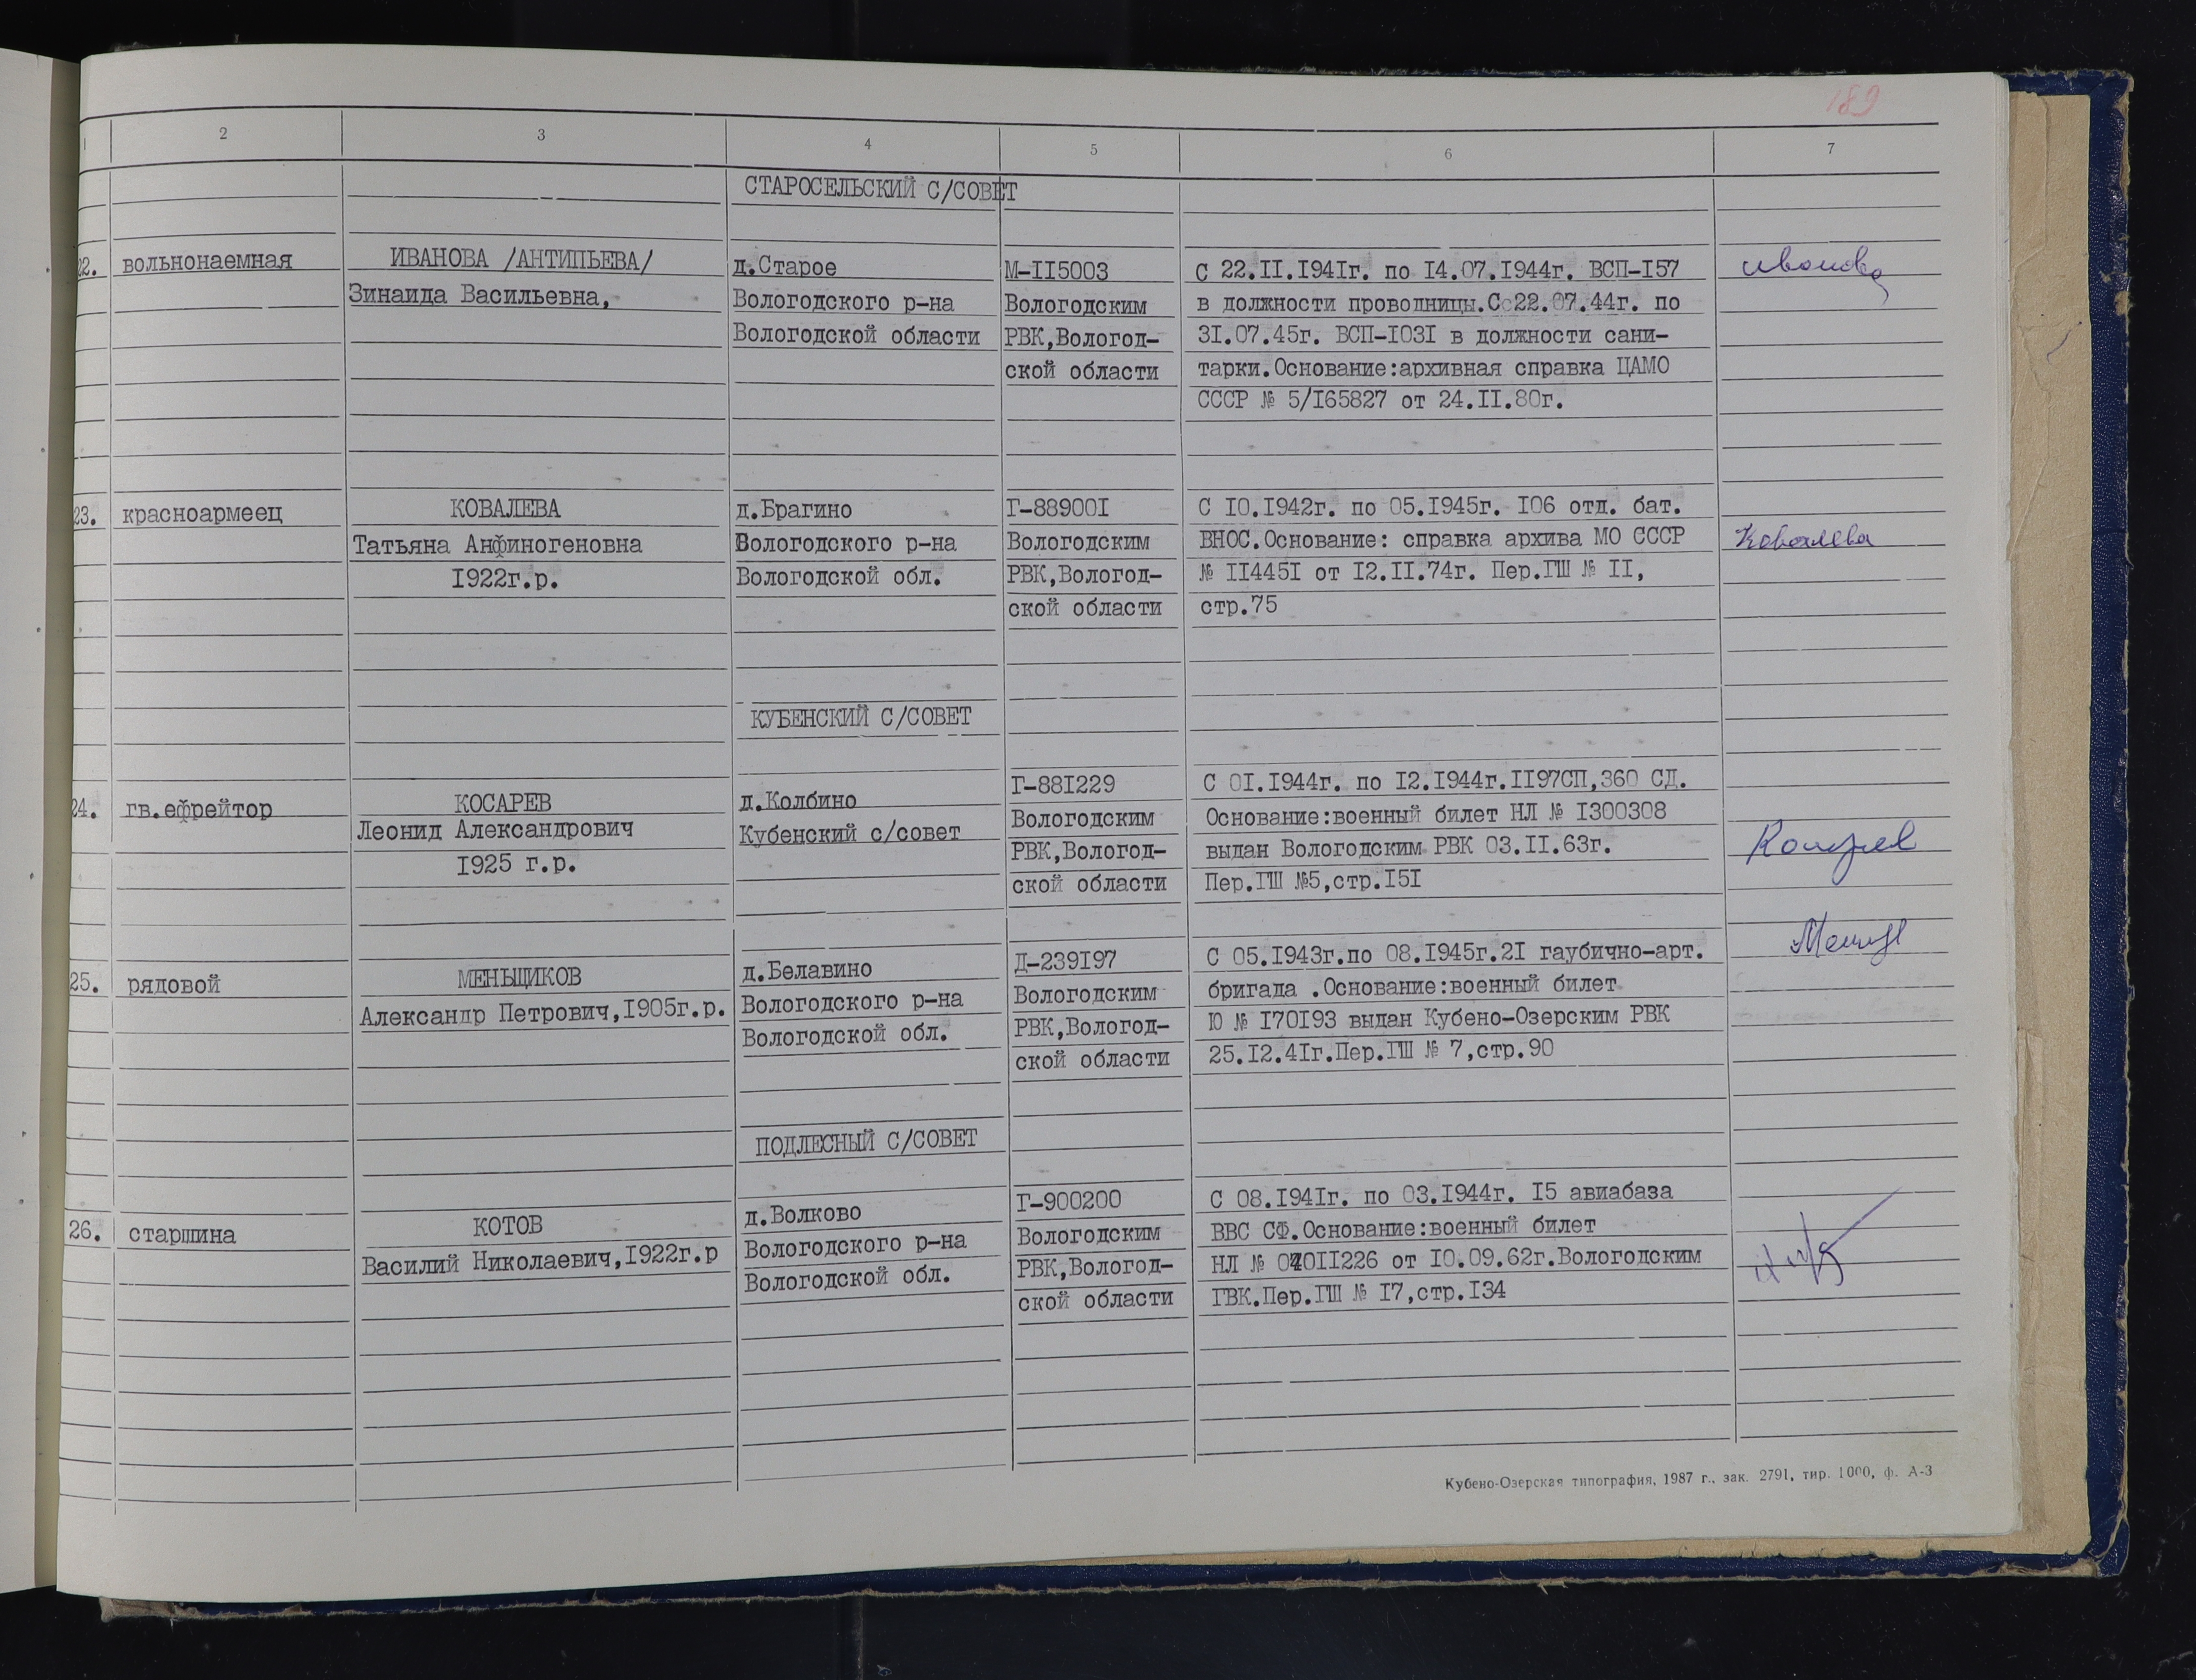 189
2 3 4 5 6 7
СТАРОСЕЛЬСКИЙ С/СОВЕТ
22. вольнонаемная
ИВАНОВА /АНТИПЬЕВА/
Зинаида Васильевна,
д.Старое
Вологодского р-на
Вологодской области
М-II5003
Вологодским
РВК,Вологод-
ской области
С 22.II.I94Iг. по I4.07.I944г. ВСП-I57
в должности проводницы.С 22.07.44г. по
3I.07.45г. ВСП-I03I в должности сани-
тарки.Основание:архивная справка ЦАМО
СССР № 5/I65827 от 24.II.80г.
Иванова
23. красноармеец
КОВАЛЕВА
Татьяна Анфиногеновна
I922г.р.
д.Брагино
Вологодского р-на
Вологодской обл.
Г-88900I
Вологодским
РВК,Вологод-
ской области
С I0.I942г. по 05.I945г. I06 отд. бат.
ВНОС.Основание: справка архива МО СССР
№ II445I от I2.II.74г. Пер.ГШ № II,
стр.75
Ковалева
КУБЕНСКИЙ С/СОВЕТ
24. гв.ефрейтор
КОСАРЕВ
Леонид Александрович
I925 г.р.
д.Колбино
Кубенский с/совет
Г-88I229
Вологодским
РВК,Вологод-
ской области
С 0I.I944г. по I2.I944г.II97СП,360 СД.
Основание:военный билет НЛ № I300308
выдан Вологодским РВК 03.II.63г.
Пер.ГШ №5,стр.I5I
25. рядовой
МЕНЬЩИКОВ
Александр Петрович,I905г.р.
д.Белавино
Вологодского р-на
Вологодской обл.
Д-239I97
Вологодским
РВК,Вологод-
ской области
С 05.I943г.по 08.I945г.2I гаубично-арт.
бригада .Основание:военный билет
Ю № I70I93 выдан Кубено-Озерским РВК
25.I2.4Iг.Пер.ГШ № 7,стр.90
ПОДЛЕСНЫЙ С/СОВЕТ
26. старшина
КОТОВ
Василий Николаевич,I922г.р
д.Волково
Вологодского р-на
Вологодской обл.
Г-900200
Вологодским
РВК,Вологод-
ской области
С 08.I94Iг. по 03.I944г. I5 авиабаза
ВВС СФ.Основание:военный билет
НЛ № от I0.09.62г.Вологодским
ГВК.Пер.ГШ № I7,стр.I34
Кубено-Озерская типография, 1987 г., зак. 2791, тир. 1000, ф. А-3